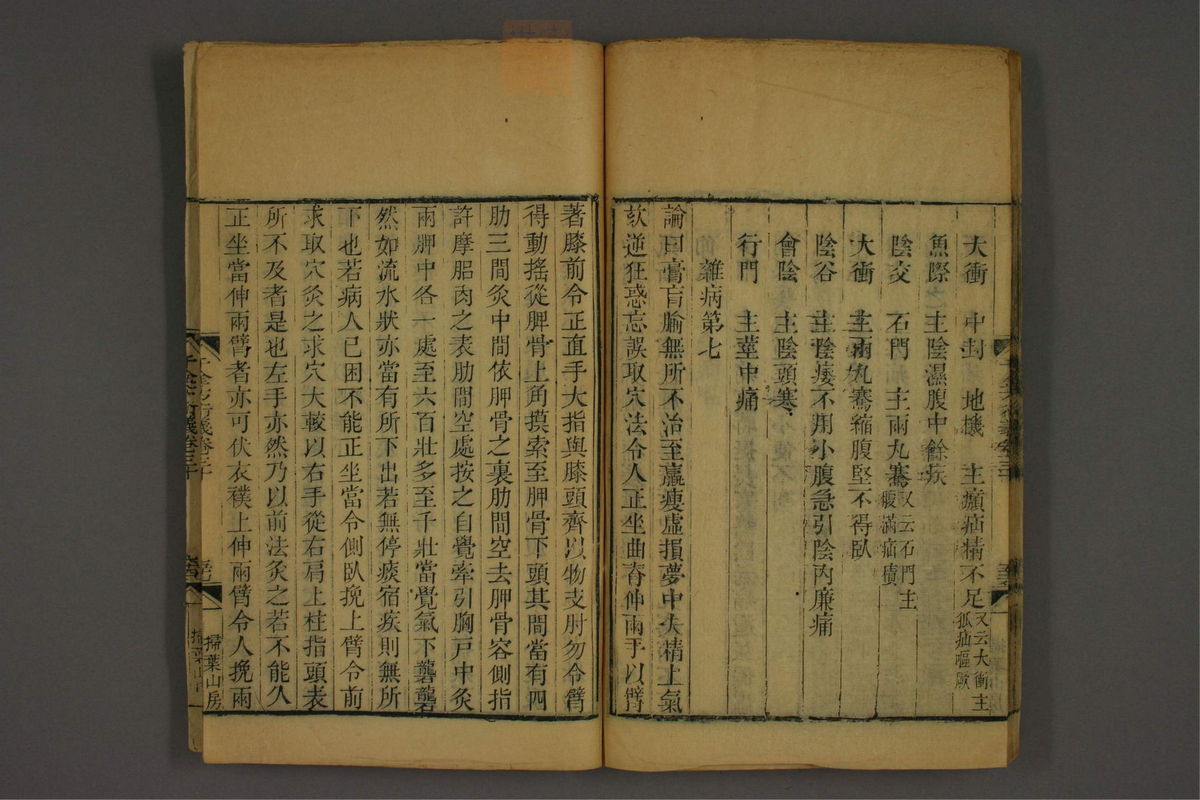 大衝　中封　地機　主㿗疝精不足又云大衝主狐疝嘔厥
魚際　主陰濕腹中餘疾
陰交　石門　主兩丸騫又云石門主腹滿疝積
大衝　主兩丸騫縮腹堅不得臥
陰谷　主陰痿不用小腹急引陰内廉痛
會陰　主陰頭寒
行門　主莖中痛
雜病第七
論曰膏肓腧無所不治主羸瘦虛損夢中失精上氣
欬逆狂惑忘誤取穴法令人正坐曲脊伸兩手以臂
著膝前令正直手大指與膝頭齊以物支肘勿令臂
得動搖從胛骨上角摸索至胛骨下頭其間當有四
肋三間灸中間依胛骨之裏肋間空去胛骨容側指
許摩䏚肉之表肋間空處按之自覺牽引胸戸中灸
兩胛中各一處至六百壯多至千壯當覺氣下礱礱
然如流水狀亦當有所下出若無停痰宿疾則無所
下也若病人已困不能正坐當令側臥挽上臂令前
求取穴灸之求穴大較以右手從右肩上柱指頭表
所不及者是也左手亦然乃以前法灸之若不能久
正坐當伸兩臂者亦可伏衣襆上伸兩臂令人挽兩
掃葉山房